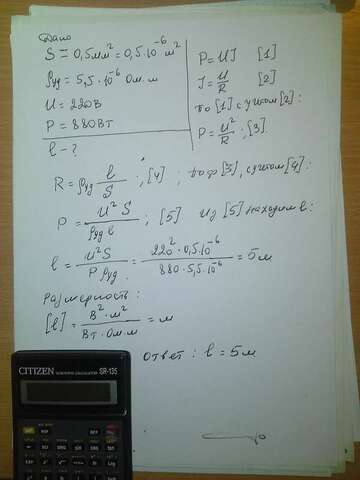 Дано
S = 0,5мм² = 0,5·10⁻⁶ м²
ρуд = 5,5·10⁻⁶ Ом·м
U = 220В
P = 880Вт
l - ?
P = UI [1]
I = U/R [2]
По [1] с учётом [2]:
P = U²/R ; [3].
R = ρуд l/S ; [4] ; по ф [3], с учётом [4]:
P = U²S/ρуд l ; [5] Из [5] находим l:
l = U²S/P ρуд = 220²·0,5·10⁻⁶/880·5,5·10⁻⁶ = 5м
Размерность:
[l] = В²·м²/Вт·Ом·м = м
Ответ: l = 5м
CITIZEN
SR-135